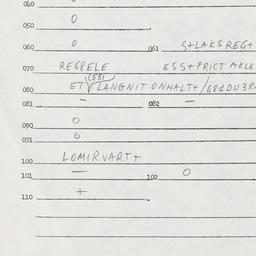 040
050 0
060 0 061 S+LAKSREG+
070 REG8ELE ESS+PRICT AKLE
(581)
080 ET LANGNIT ONHALT+/681DU3R
081 — 082 —
090 0
091 0
100 LOMIRVART+
101 — 102 0
110 +